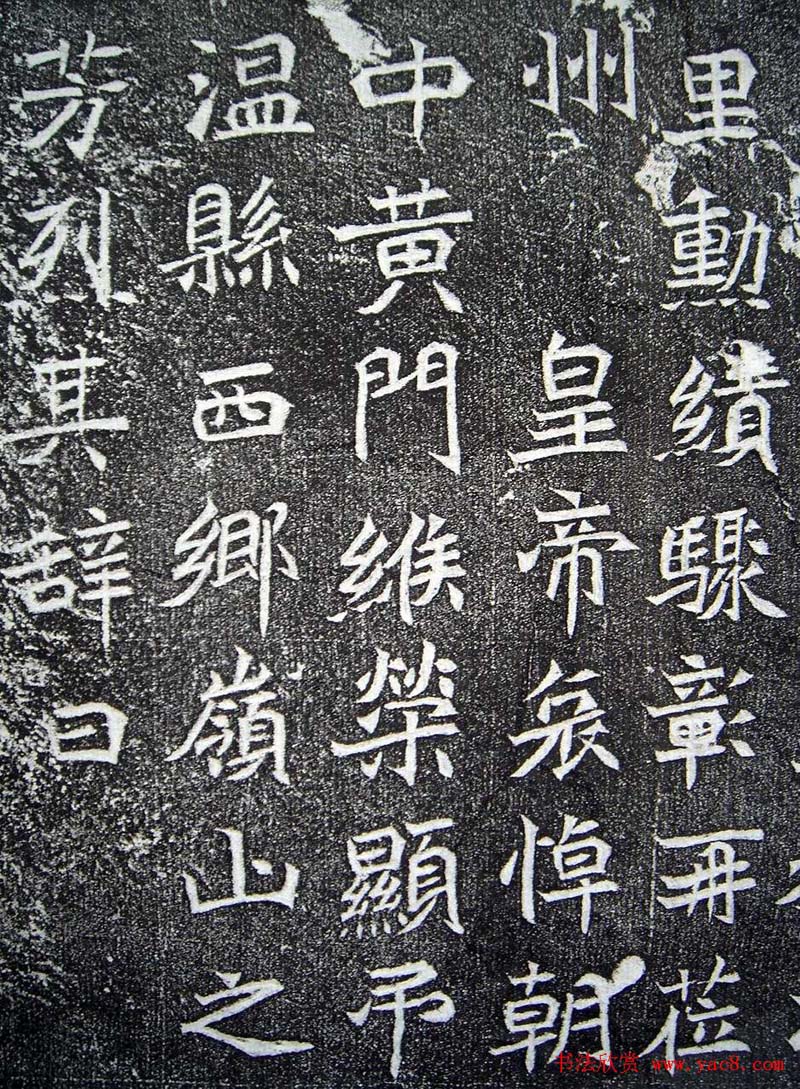 里勳績驟彰再莅
州皇帝哀悼朝
中黃門緱榮顯吊
温縣西鄉嶺山之
芳烈其辞曰
书法欣赏 www.yac8.com